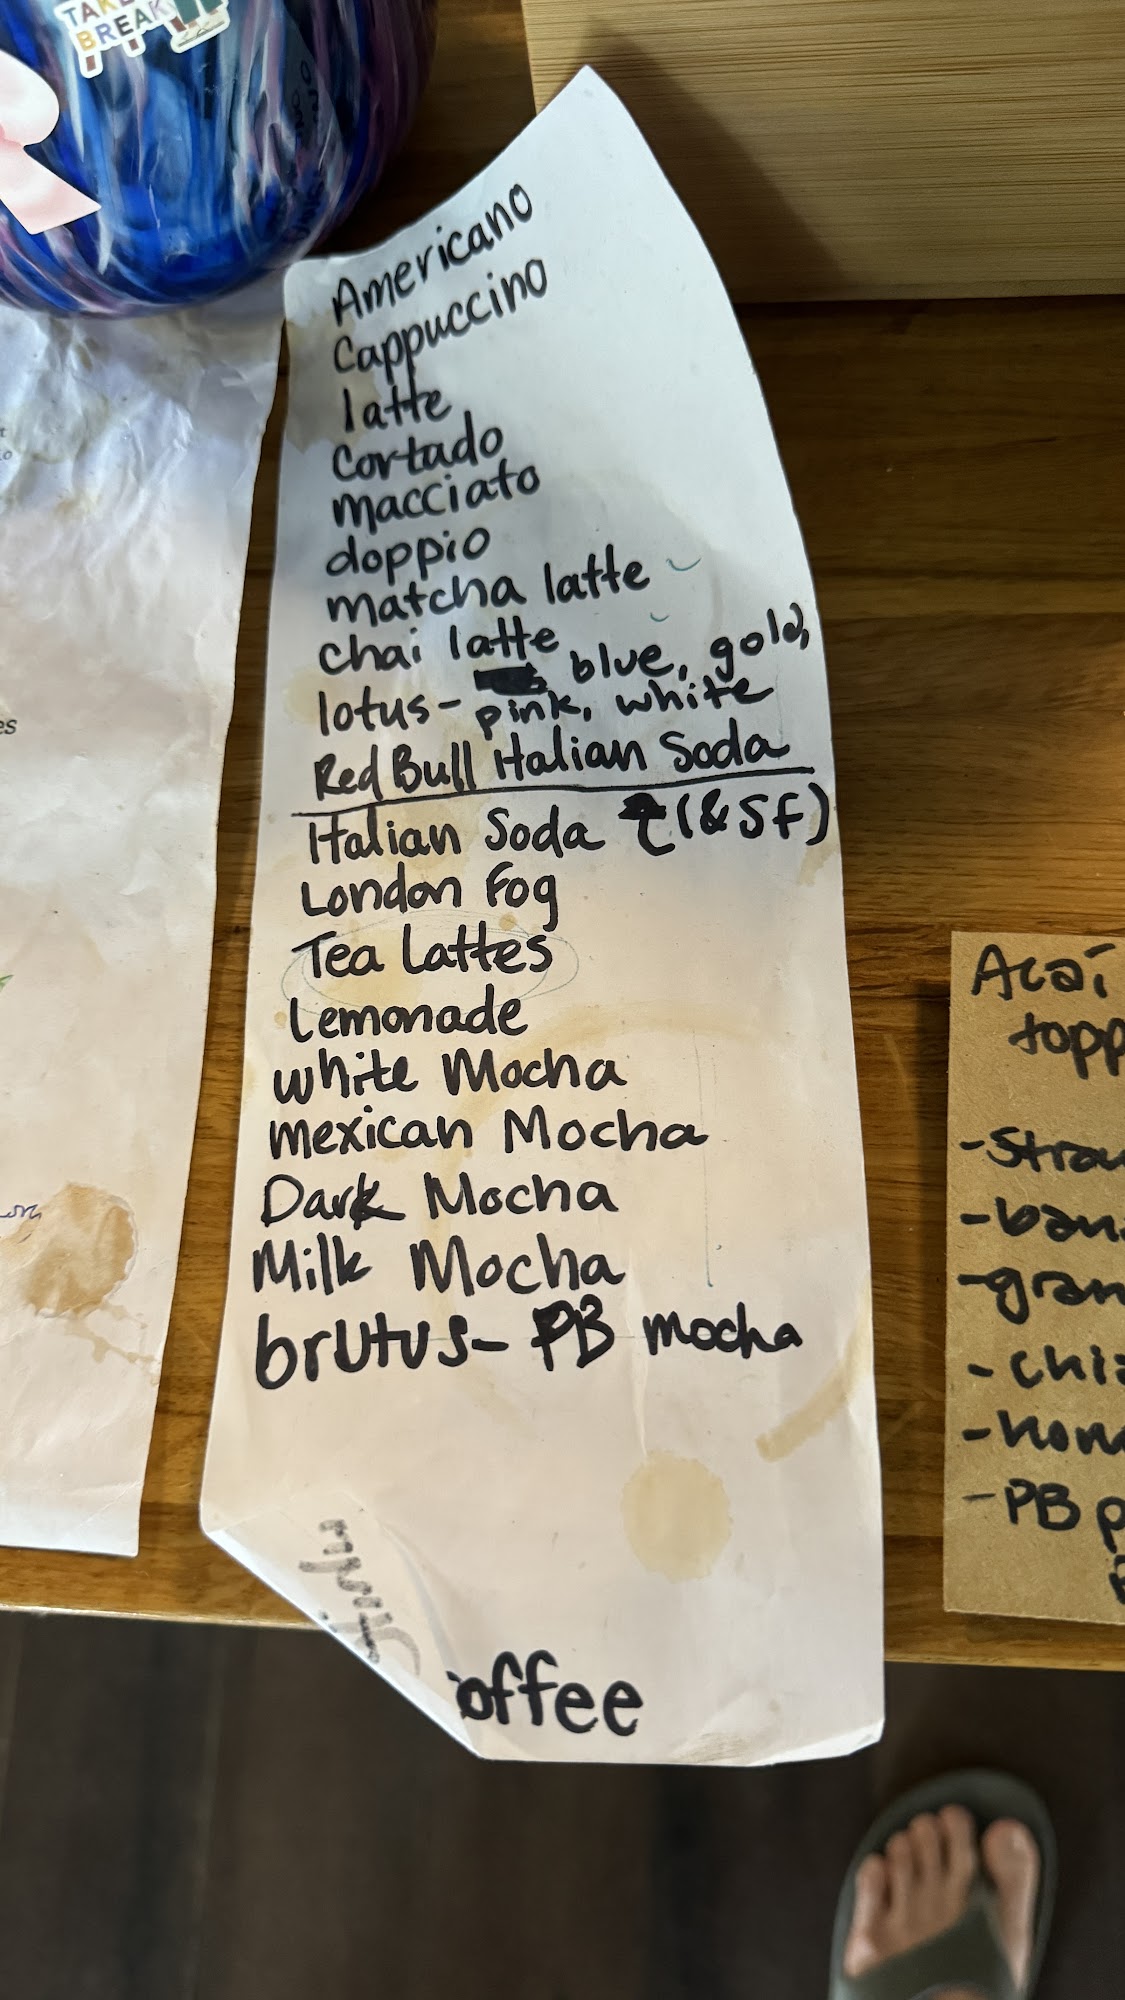 TAKE
BREAK
Americano
Cappuccino
latte
cortado
macciato
doppio
matcha latte
chai latte
lotus- blue, gold,
pink, white
Red Bull Italian Soda
Italian Soda (&SF)
London Fog
Tea Lattes
Lemonade
white Mocha
mexican Mocha
Dark Mocha
Milk Mocha
brutus- PB mocha
offee
Acaí
topp
-Straw
-bana
-gran
-chia
-hone
-PB p